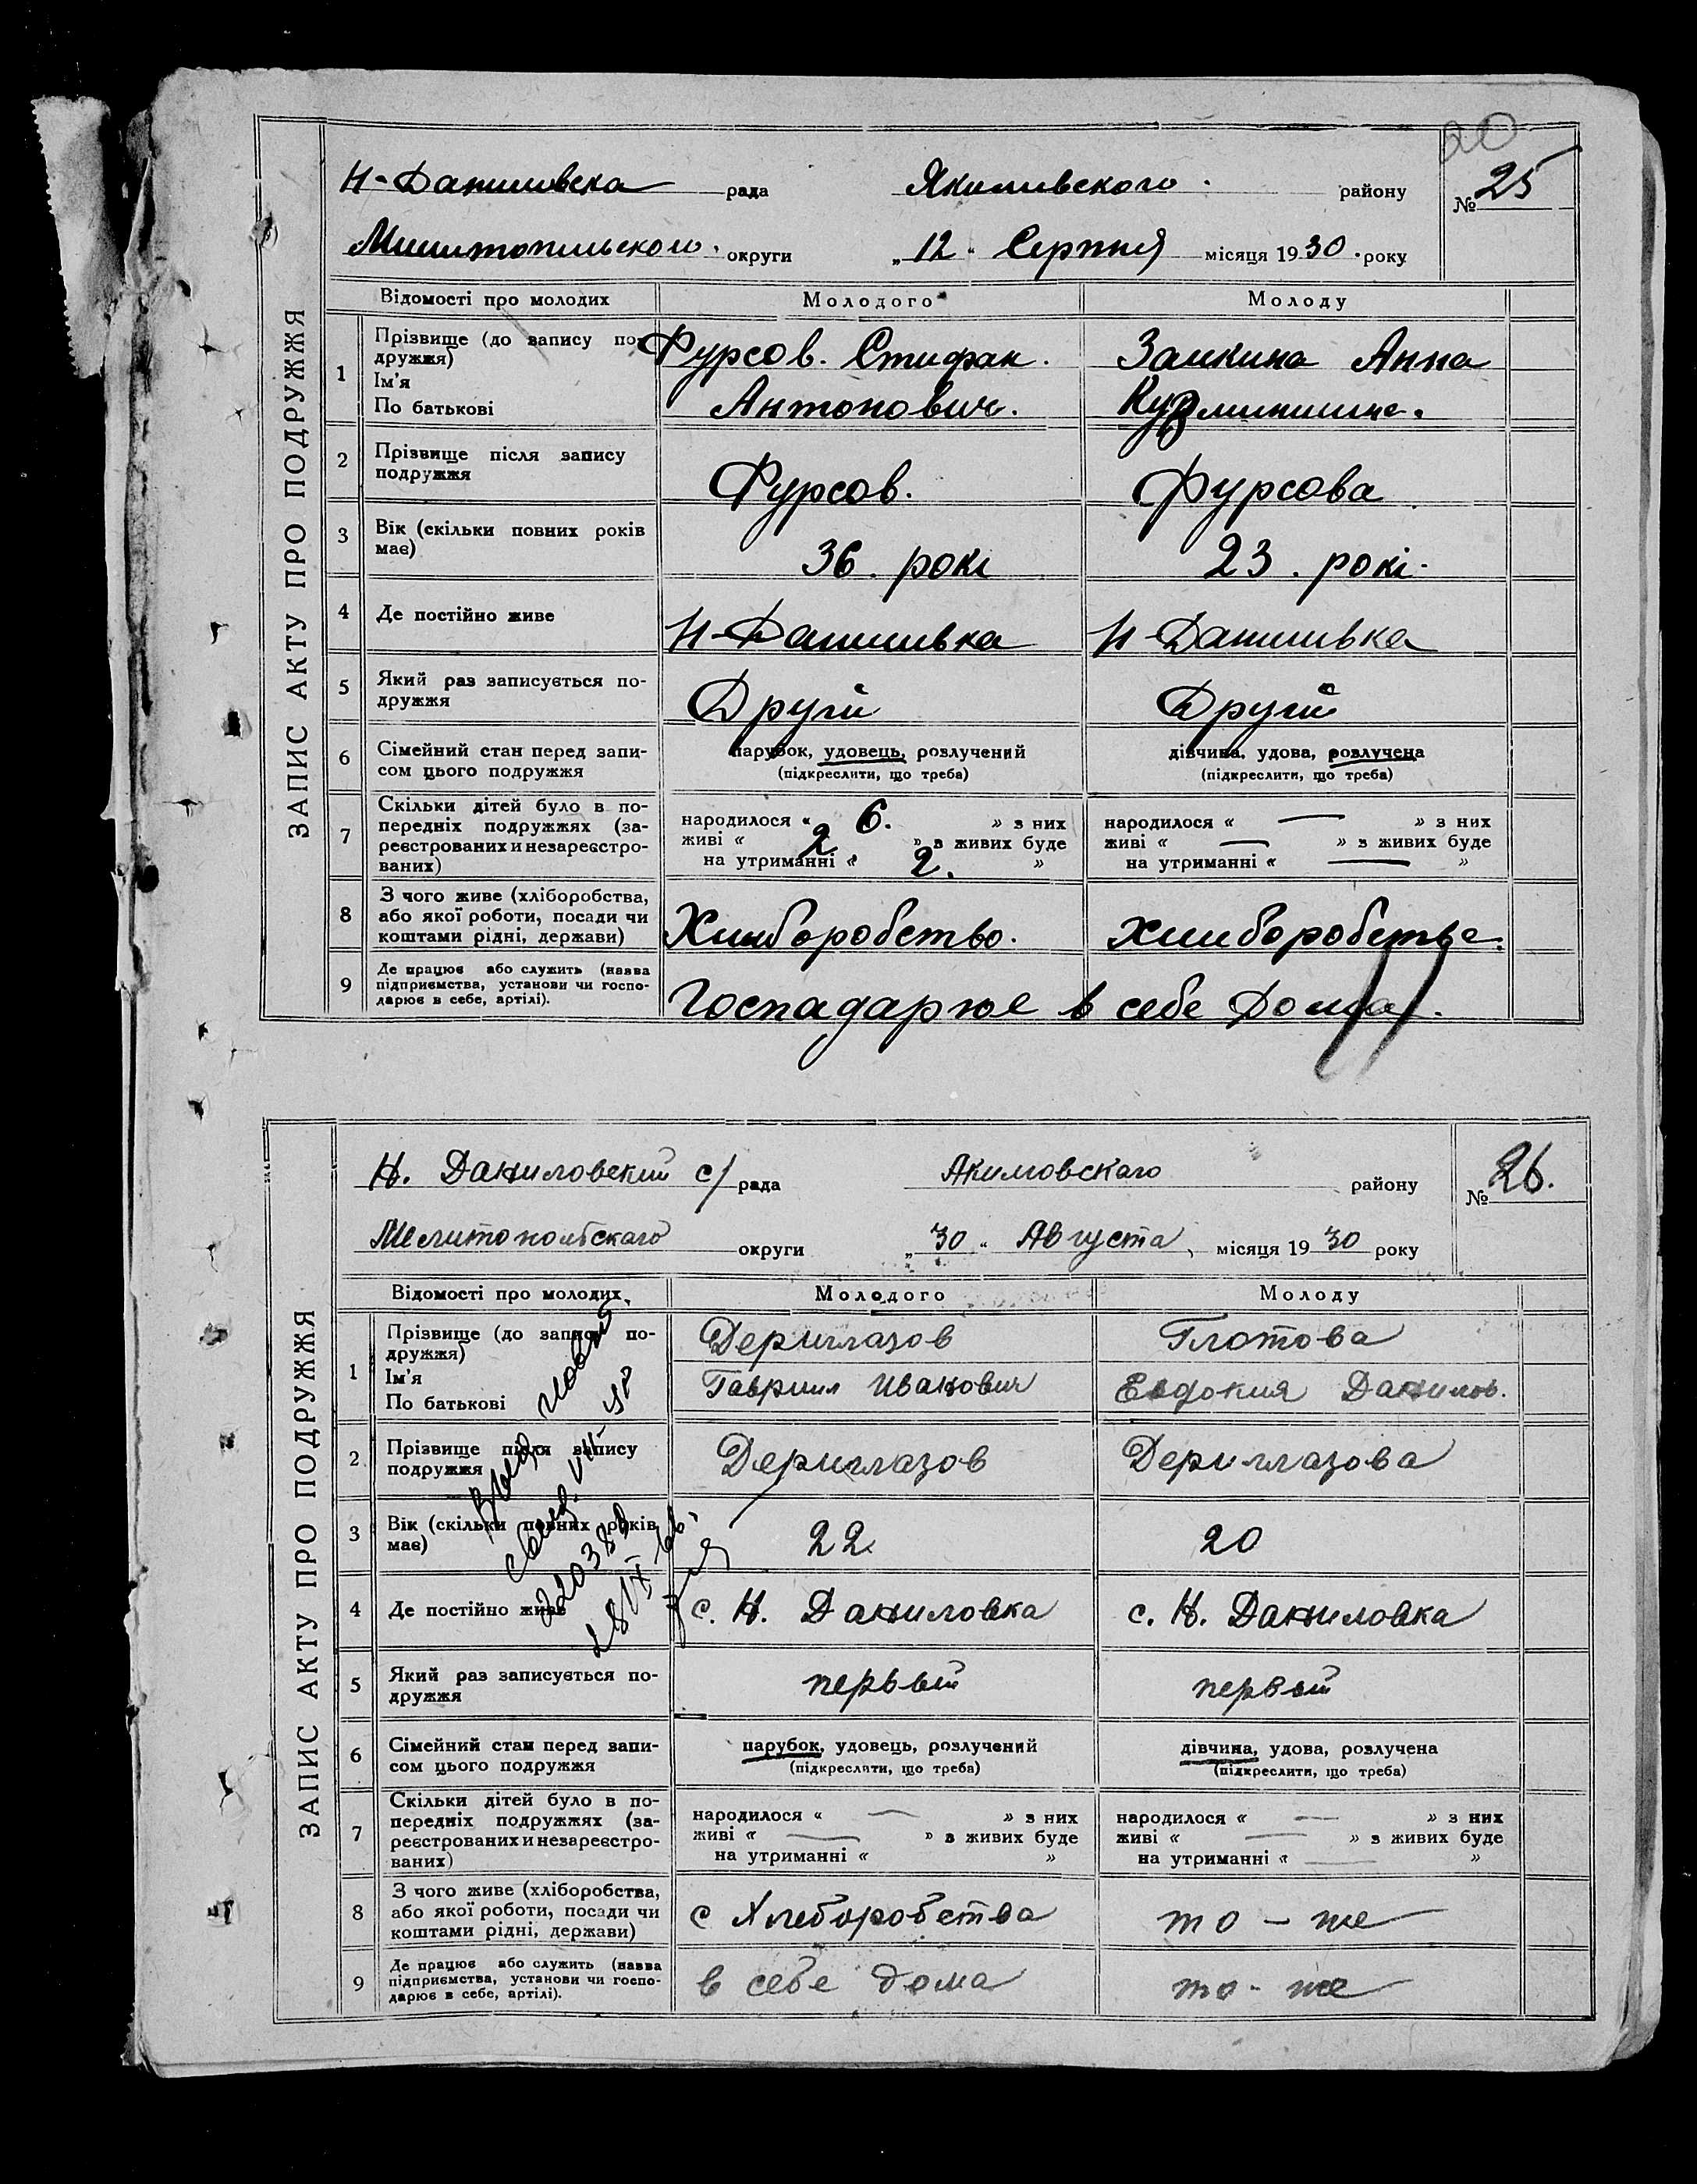 20
Н-Данилівска рада Якимивского району № 25
Милитопильского округи „12" Серпня місяця 1930 року
ЗАПИС АКТУ ПРО ПОДРУЖЖЯ
Відомості про молодих Молодого Молоду
1 Прізвище (до запису по-
дружжя)
Ім'я
По батькові
Фурсов. Стифан. Заикина Анна
Антонович.
2 Прізвище після запису
подружжя
Фурсов. Фурсова
3 Вік (скільки повних років
має)
36. рокі 23. рокі.
4 Де постійно живе Н-Даниливка Н-Даниливка
5 Який раз записується по-
дружжя
Другій Другій
6 Сімейний стан перед запи-
сом цього подружжя
парубок, удовець, розлучений дівчина, удова, розлучена
(підкреслити, що треба) (підкреслити, що треба)
7 Скільки дітей було в по-
передніх подружжях (за-
реєстрованих и незареєстро-
ваних)
народилося « 6. » з них народилося « — » з них
живі « 2 » з живих буде живі « — » з живих буде
на утриманні « 2. » на утриманні « — »
8 З чого живе (хліборобства,
або якої роботи, посади чи
коштами рідні, держави)
Хлиборобство. Хлиборобство.
9 Де працює або служить (назва
підприємства, установи чи госпо-
дарює в себе, артілі).
Госпадарює в себе Дома.
Н. Даниловский с/рада Акимовскаго району № 26.
Мелитопольскаго округи „30" Августа місяця 1930 року
ЗАПИС АКТУ ПРО ПОДРУЖЖЯ
Відомості про молодих Молодого Молоду
1 Прізвище (до запису по-
дружжя)
Ім'я
По батькові
Дериглазов Глотова
Гавриил Иванович Евдокия Данилов.
2 Прізвище після запису
подружжя
Дериглазов Дериглазова
3 Вік (скільки повних років
має)
22 20
4 Де постійно живе с. Н. Даниловка с. Н. Даниловка
5 Який раз записується по-
дружжя
первый первый
6 Сімейний стан перед запи-
сом цього подружжя
парубок, удовець, розлучений дівчина, удова, розлучена
(підкреслити, що треба) (підкреслити, що треба)
7 Скільки дітей було в по-
передніх подружжях (за-
реєстрованих и незареєстро-
ваних)
народилося « — » з них народилося « — » з них
живі « — » з живих буде живі « — » з живих буде
на утриманні « » на утриманні « — »
8 З чого живе (хліборобства,
або якої роботи, посади чи
коштами рідні, держави)
с Хлеборобства то - же
9 Де працює або служить (назва
підприємства, установи чи госпо-
дарює в себе, артілі).
в себе дома то - же